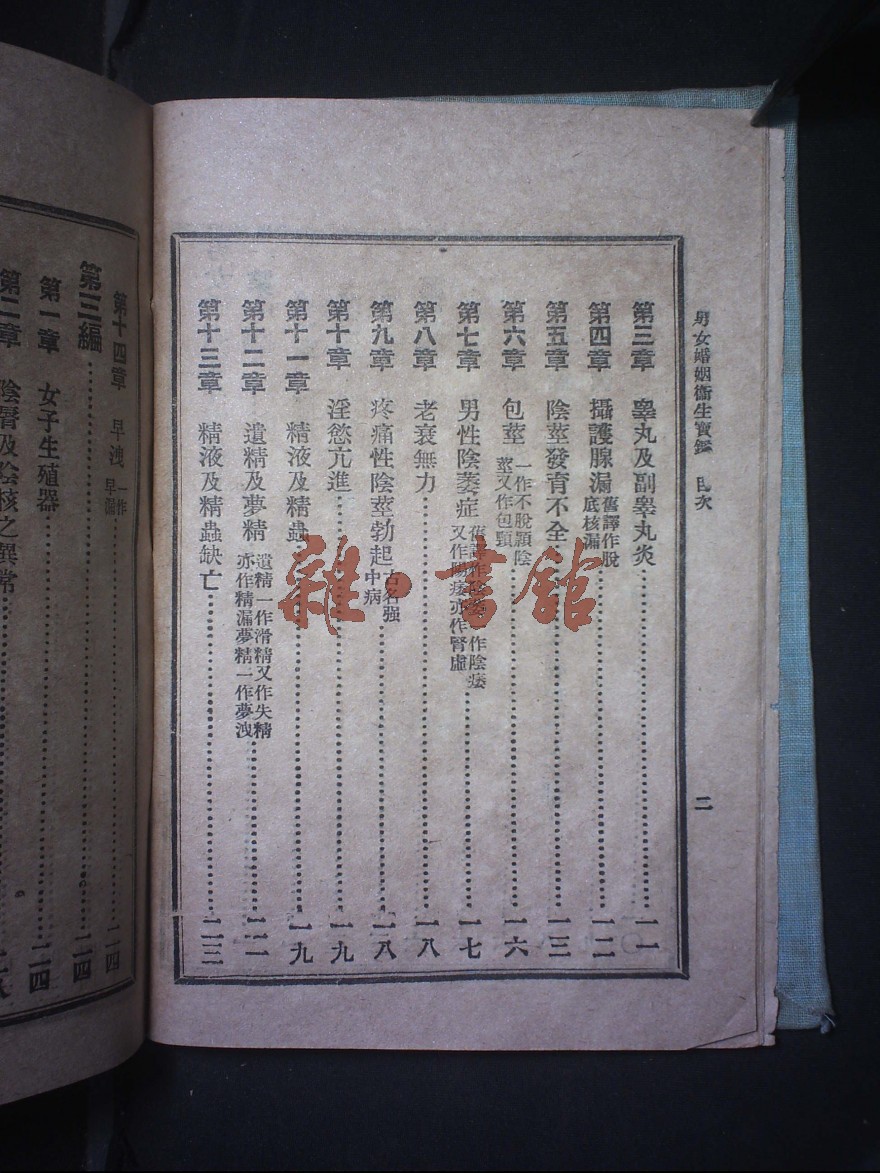 男女婚姻衞生寶鑑 目次 二
第三章 睾丸及副睾丸炎 一一
第四章 攝護腺漏 舊譯作脫底核漏 一二
第五章 陰莖發育不全 一三
第六章 包莖 一作不脫顯陰莖又作包頸 一六
第七章 男性陰萎症 作陰痿又作陽痿亦作腎虛 一七
第八章 老衰無力 一八
第九章 疼痛性陰莖勃起 古名强中病 一八
第十章 淫慾亢進 一九
第十一章 精液及精蟲 一九
第十二章 遺精及夢精 遺精一作滑精又作失精亦作精漏夢精一作夢洩 二一
第十三章 精液及精蟲缺亡 二三
第十四章 早洩 一作早漏 二四
第三編 二四
第一章 女子生殖器 二四
第二章 陰脣及陰核之異常
雜·書館